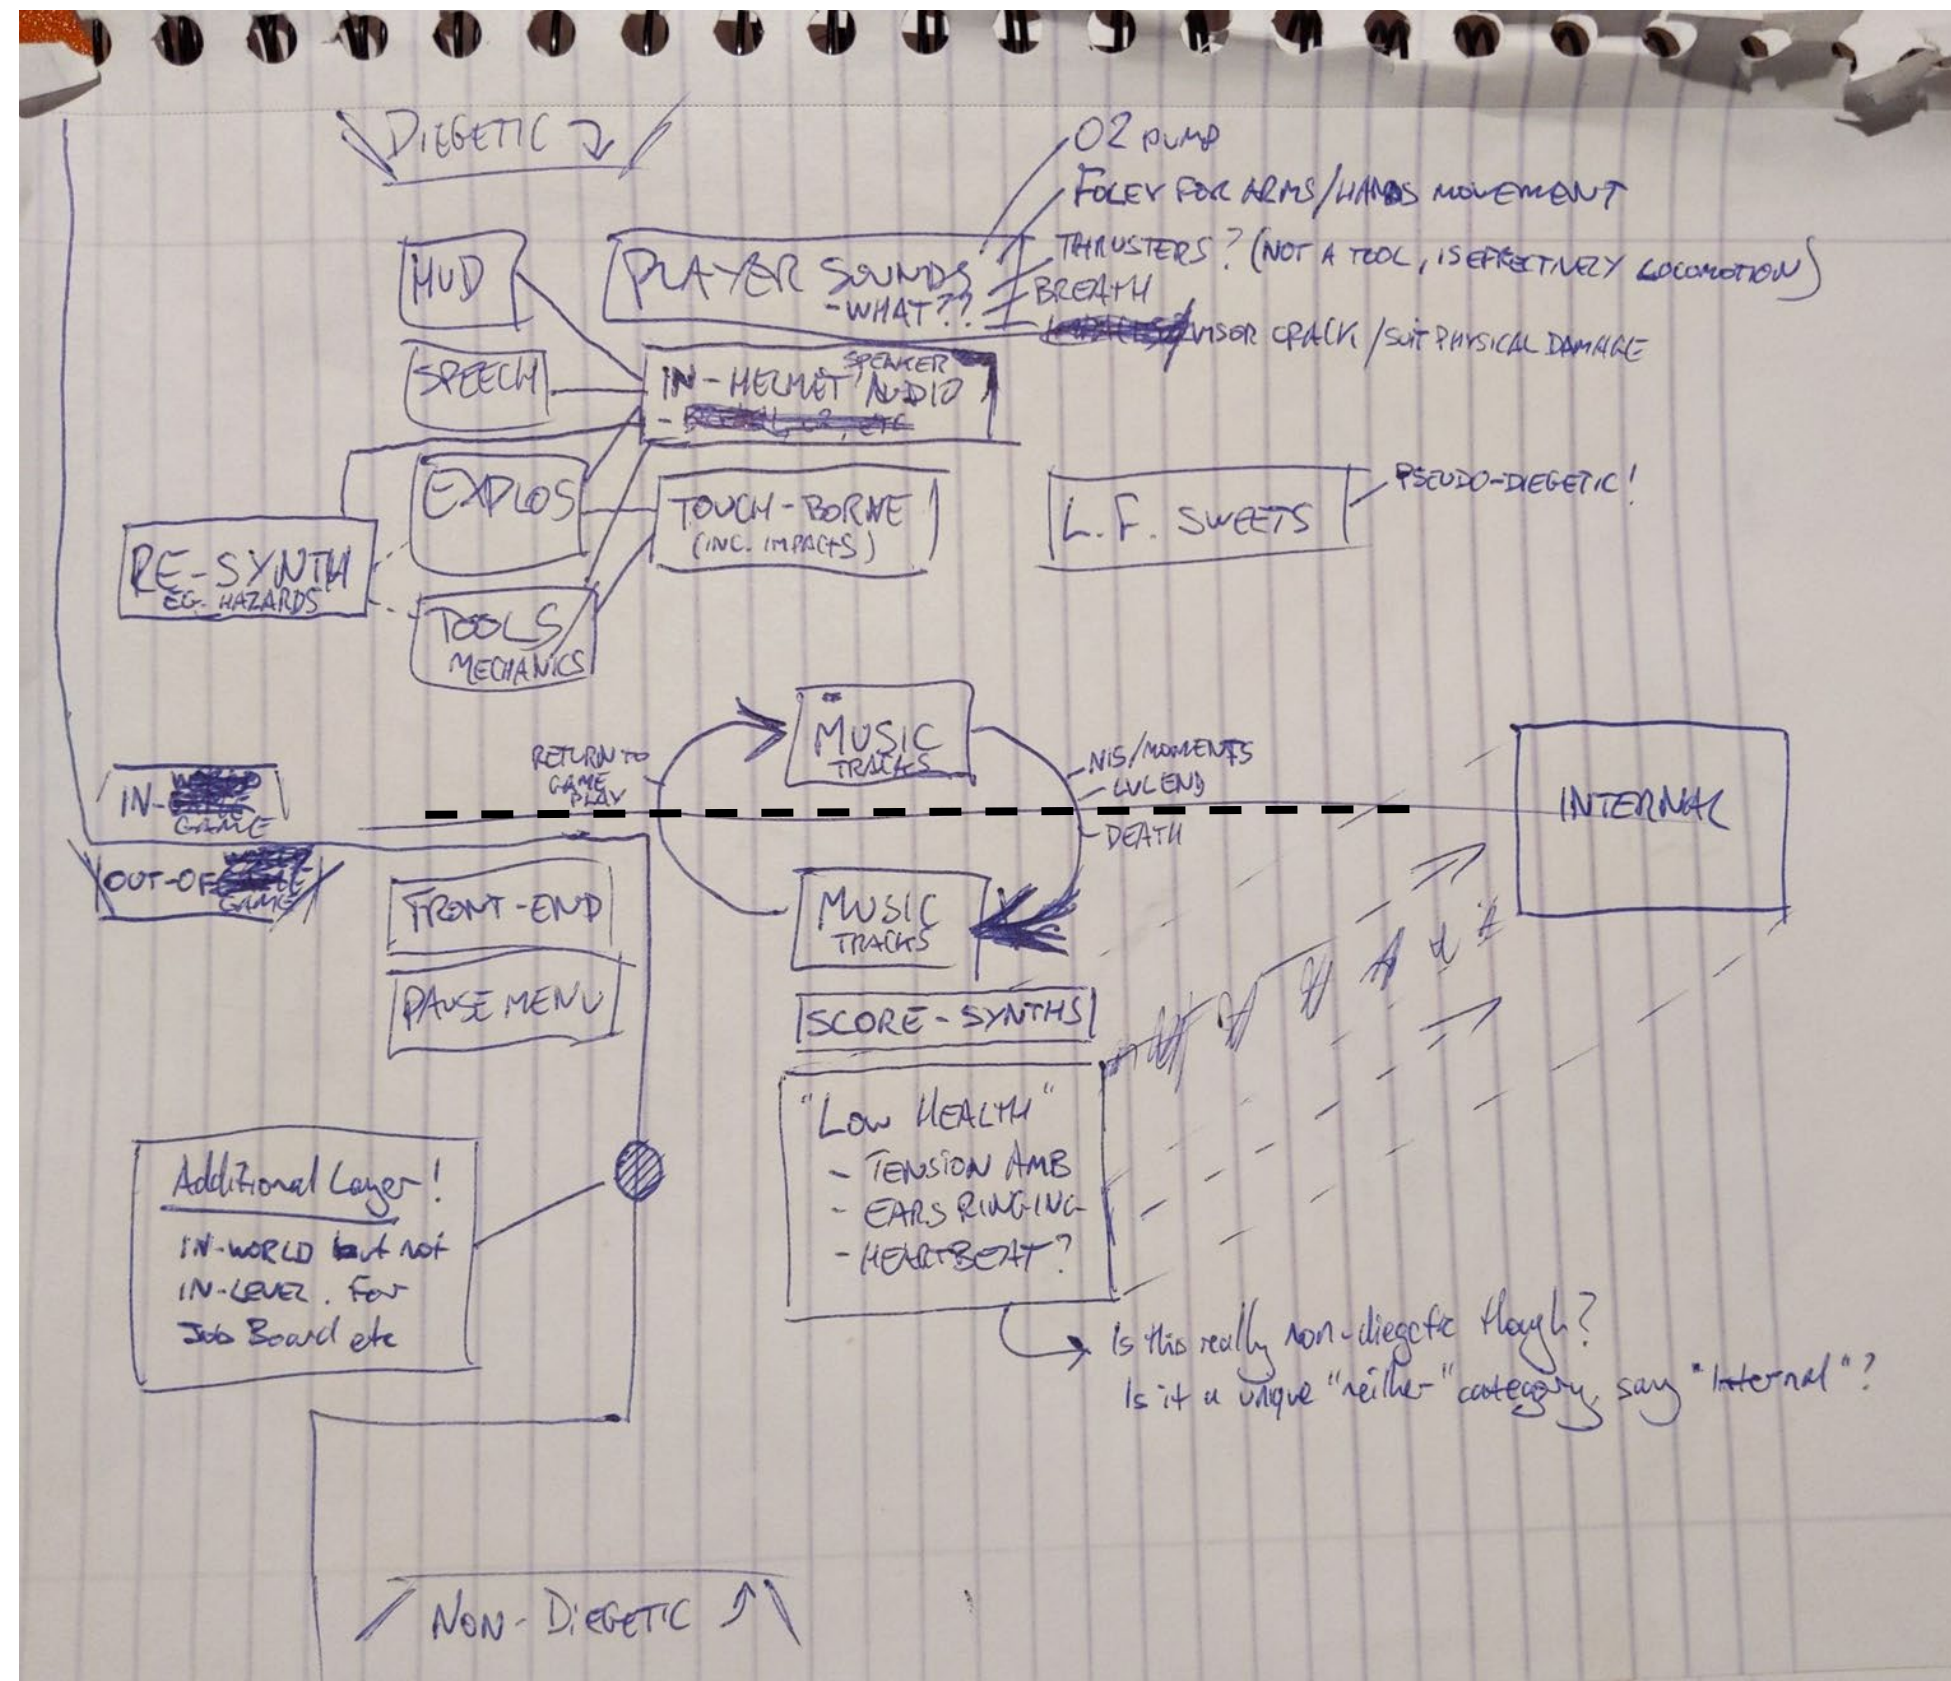 DIEGETIC
O2 PUMP
FOLEY FOR ARMS/HANDS MOVEMENT
HUD
PLAYER SOUNDS
- WHAT??
THRUSTERS? (NOT A TOOL, IS EFFECTIVELY LOCOMOTION)
BREATH
VISOR CRACK / SUIT PHYSICAL DAMAGE
SPEECH
SPEAKER
IN-HELMET AUDIO
EXPLOS
TOUCH-BORNE
(INC. IMPACTS)
L.F. SWEETS
PSEUDO-DIEGETIC!
RE-SYNTH
EG. HAZARDS
TOOLS/
MECHANICS
MUSIC
TRACKS
RETURN TO
GAME
PLAY
NIS/MOMENTS
LVL END
DEATH
INTERNAL
IN-
GAME
OUT-OF
GAME
FRONT-END
MUSIC
TRACKS
PAUSE MENU
SCORE-SYNTHS
"LOW HEALTH"
- TENSION AMB
- EARS RINGING
- HEARTBEAT?
Additional Layer!
IN-WORLD but not
IN-LEVEL. For
Job Board etc
Is this really non-diegetic though?
Is it a unique "neither" category, say "Internal"?
NON-DIEGETIC